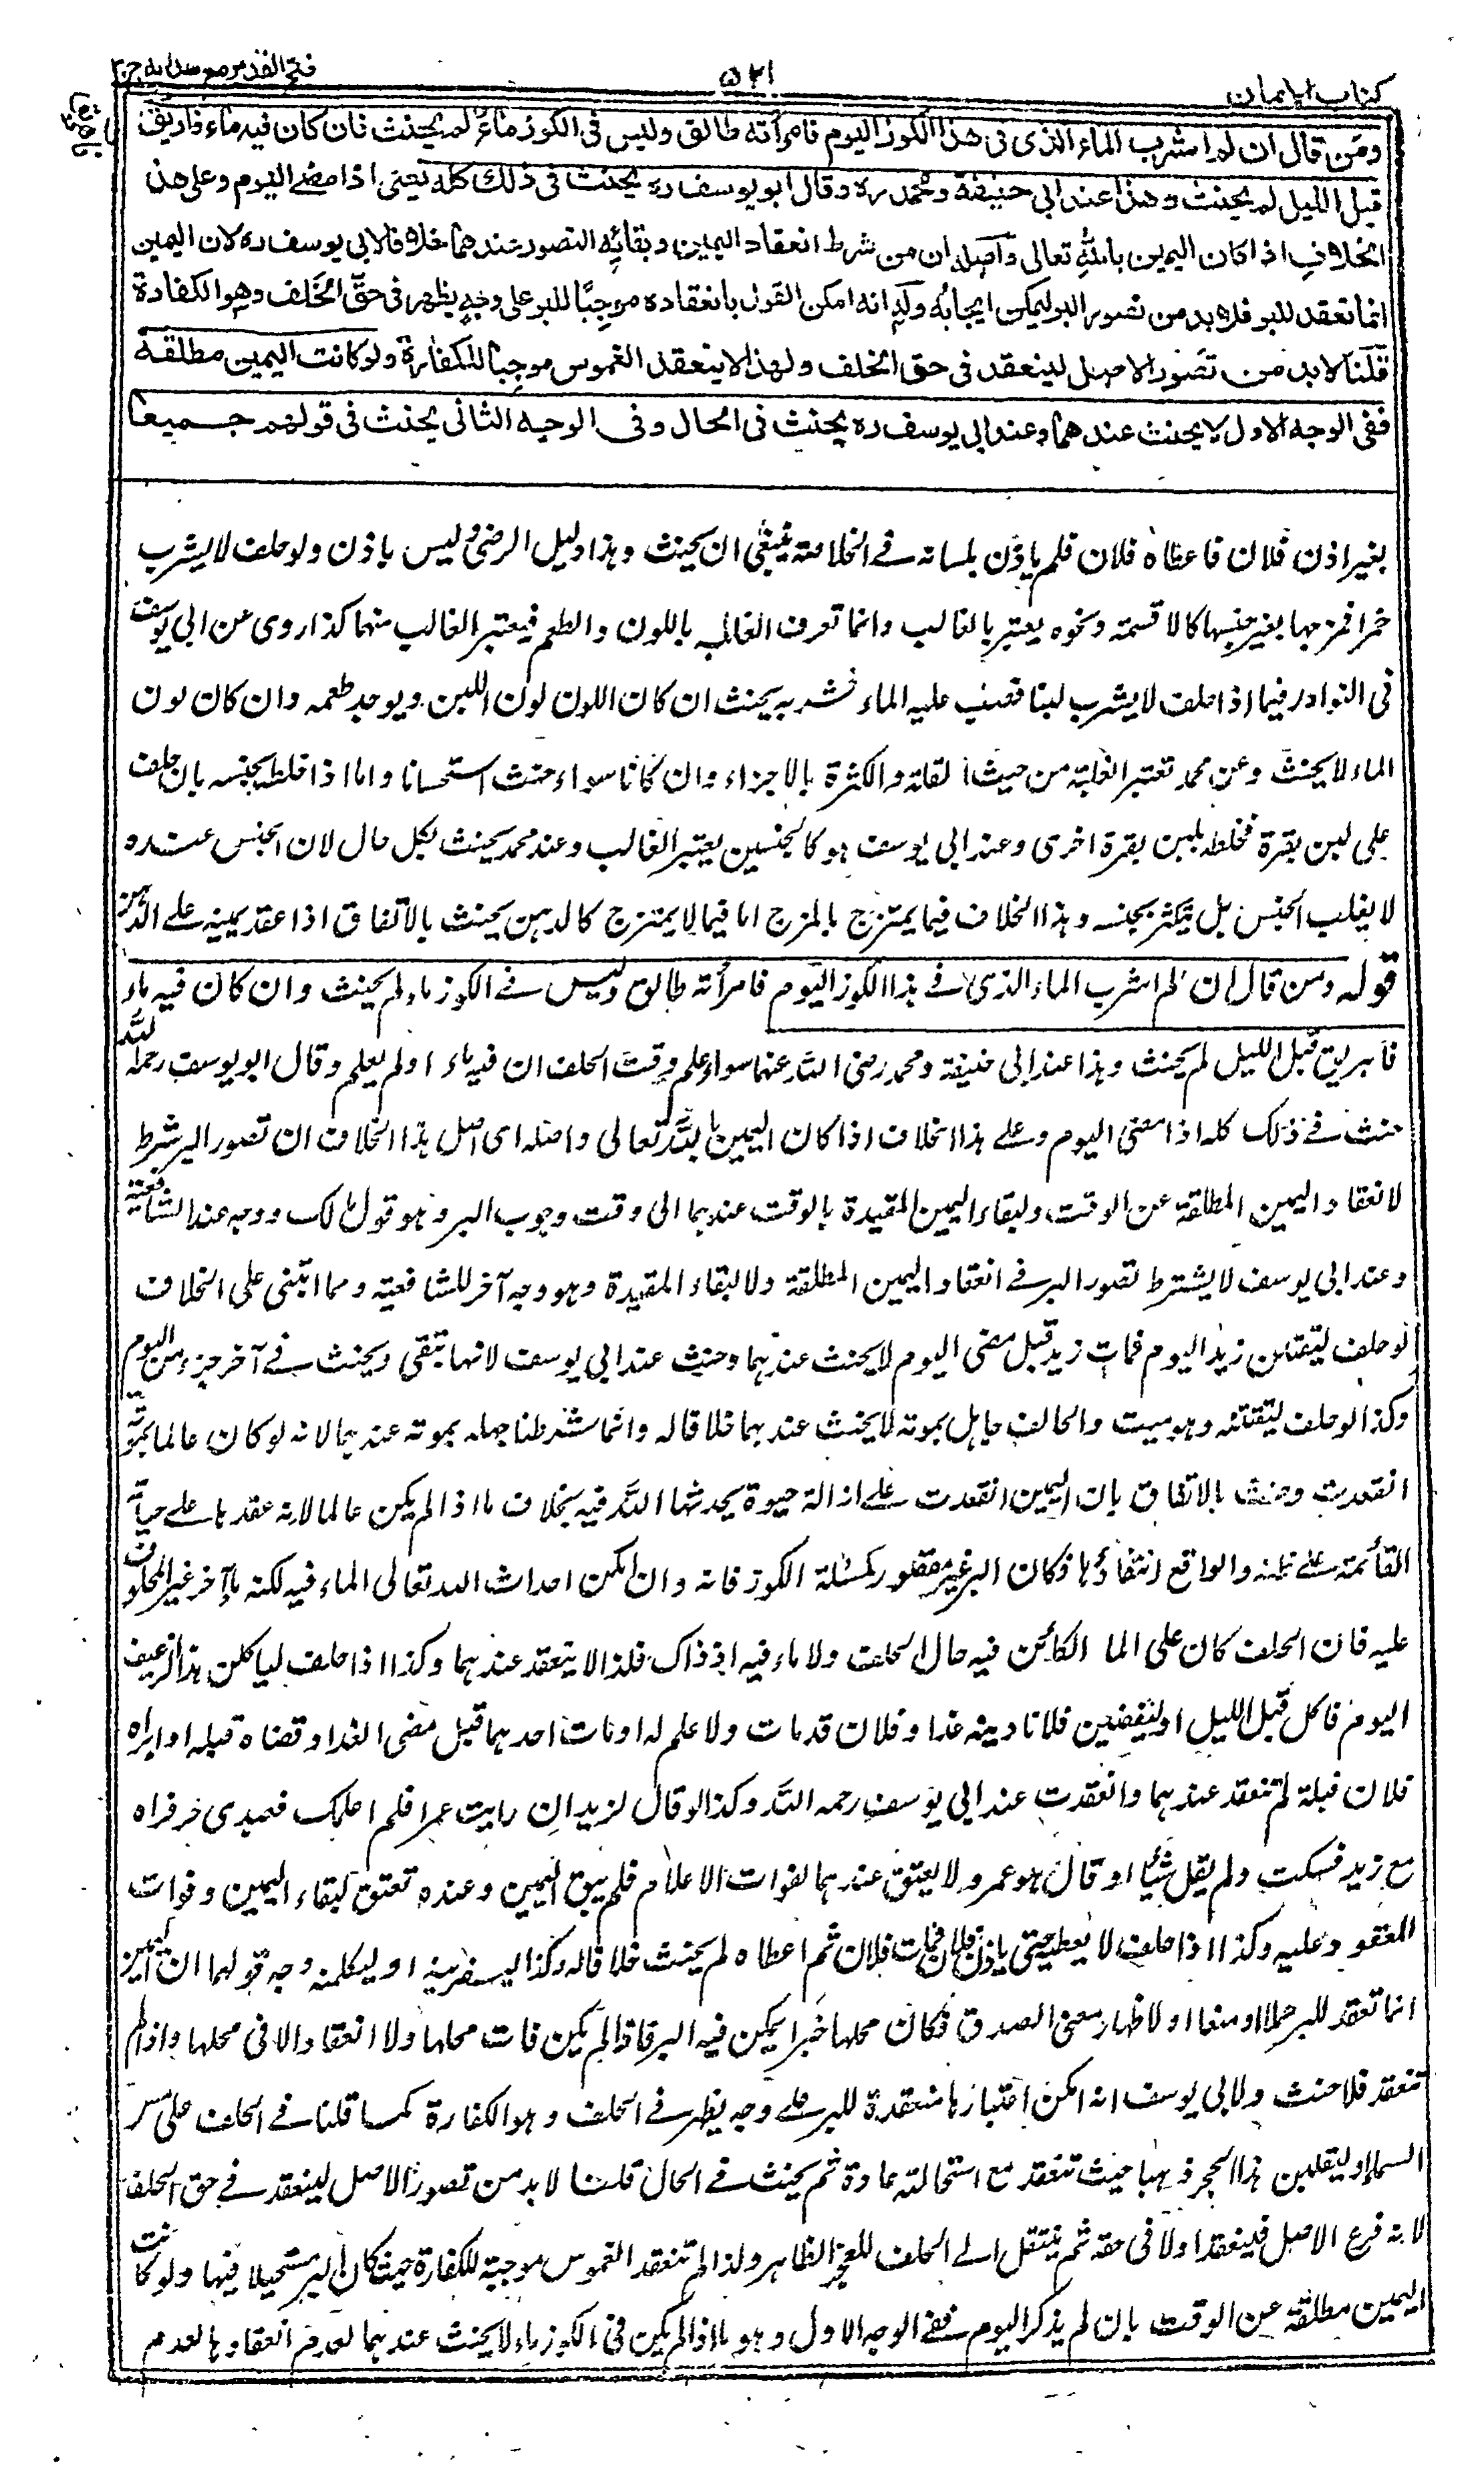 كتاب الايمان
۵۲۱
فتح القدير مع هدايه ج۲
ومن قال ان لم اشرب الماء الذى فى هذا الكوز اليوم فامرأته طالق وليس فى الكوز ماء لم يحنث فان كان فيه ماء فاريق
قبل الليل لم يحنث وهذا عند ابى حنيفة ومحمد ره وقال ابو يوسف ره يحنث فى ذلك كله يعنى اذا مضے اليوم وعلى هذ
الخلاف اذا كان اليمين بالله تعالى واصله ان من شرط انعقاد اليمين وبقائه التصور عندهما خلافا لابى يوسف ره لان اليمين
انما تعقد للبر فلا بد من تصور البر ليمكن ايجابه وله انه امكن القول بانعقاده موجبًا للبر على وجه يظهر فى حق الخلف وهو الكفارة
قلنا لا بد من تصور الاصل لينعقد فى حق الخلف ولهذا لا ينعقد الغموس موجبا للكفارة ولو كانت اليمين مطلقة
ففى الوجه الاول لا يحنث عندهما وعند ابى يوسف ره يحنث فى الحال وفى الوجه الثانى يحنث فى قولهم جميعا
بغير اذن فلان فاعطاه فلان فلم ياذن بلسانه فے الخلاصة ينبغى ان يحنث وهذا دليل الرضى وليس باذن ولو حلف لا يشرب
خمرا فمزجها بغير جنسها كالاقسمة ونحوه يعتبر بالغالب وانما تعرف الغالب باللون والطعم فيعتبر الغالب منهما كذا روى عن ابى يوسف
فى النوادر فيما اذا حلف لا يشرب لبنا فصب عليه الماء فشربه يحنث ان كان اللون لون اللبن ويوجد طعمه وان كان لون
الماء لا يحنث وعن محمد تعتبر الغلبة من حيث القلة والكثرة بالاجزاء وان كانا سواء حنث استحسانا واما اذا خلط بجنسه بان حلف
على لبن بقرة فخلطه بلبن بقرة اخرى وعند ابى يوسف هو كالجنسين يعتبر الغالب وعند محمد يحنث بكل حال لان الجنس عنده
لا يغلب الجنس بل يتكثر بجنسه وهذا الخلاف فيما يمتزج بالمزج اما فيما لا يمتزج كالدهن يحنث بالاتفاق اذا عقد يمينه علے الدهن
قوله ومن قال ان لم اشرب الماء الذى فے هذا الكوز اليوم فامرأته طالق وليس فے الكوز ماء لم يحنث وان كان فيه ماء
فاهريق قبل الليل لم يحنث وهذا عند ابى حنيفة ومحمد رضى الله عنهما سواء علم وقت الحلف ان فيه ماء او لم يعلم وقال ابو يوسف رحمه الله
حنث فے ذلك كله اذا مضى اليوم وعلے هذا الخلاف اذا كان اليمين بالله تعالى واصله اى اصل هذا الخلاف ان تصور البر شرط
لانعقاد اليمين المطلقة عن الوقت ولبقاء اليمين المقيدة بالوقت عندهما الى وقت وجوب البر وهو قول مالك ووجه عند الشافعية
وعند ابى يوسف لا يشترط تصور البر فے انعقاد اليمين المطلقة ولا لبقاء المقيدة وهو وجه آخر للشافعية ومما ابتنى على الخلاف
لو حلف ليقتلن زيدا اليوم فمات زيد قبل مضى اليوم لا يحنث عندهما وحنث عند ابى يوسف لانها تبقى ويحنث فے آخر جزء من اليوم
وكذا لو حلف ليقتلنه وهو ميت والحالف جاهل بموته لا يحنث عندهما خلافا له وانما شرطنا جهله بموته عندهما لانه لو كان عالما بموته
انعقدت وحنث بالاتفاق بان اليمين انعقدت علے ازالة حيوة يحدثها الله فيه بخلاف ما اذا لم يكن عالما لانه عقدها علے حياته
القائمة علے ظنه والواقع انتفاؤها فكان البر غير متصور كمسئلة الكوز فانه وان امكن احداث الله تعالى الماء فيه لكنه ماء آخر غير المحلوف
عليه فان الحلف كان على الما الكائن فيه حال الحلف ولا ماء فيه اذ ذاك فلذا لا ينعقد عندهما وكذا اذا حلف ليأكلن هذا الرغيف
اليوم فاكل قبل الليل او ليقضين فلانا دينه غدا وفلان قد مات ولا علم له او مات احدهما قبل مضى الغد او قضاه قبله او ابراه
فلان قبلة لم تنعقد عندهما وانعقدت عند ابى يوسف رحمه الله وكذا لو قال لزيد ان رايت عمرا فلم اعلمك فعبدى حر فراه
مع زيد فسكت ولم يقل شيئا او قال هو عمرو لا يعتق عندهما لفوات الاعلام فلم يبق اليمين وعنده تعتق لبقاء اليمين وفوات
المعقود عليه وكذا اذا حلف لا يعطيه حتى ياذن فلان فمات فلان ثم اعطاه لم يحنث خلافا له وكذا ليضربنه او ليكلمنه وجه قولهما ان اليمين
انما تعقد للبر حملا او منعا او لاظهار معنى الصدق فكان محلها خبرا يمكن فيه البر فاذا لم يكن فات محلها ولا انعقاد الا فى محلها واذا لم
تنعقد فلا حنث ولابى يوسف انه امكن اعتبارها منعقدة للبر علے وجه يظهر فے الخلف وهو الكفارة كما قلنا فے الحلف على مس
السماء او ليقلبن هذا الحجر ذهبا حيث تنعقد مع استحالته عادة ثم يحنث فے الحال قلنا لا بد من تصور الاصل لينعقد فے حق الخلف
لانه فرع الاصل فينعقد اولا فى حقه ثم ينتقل الے الخلف للعجز الظاهر ولذا لم تنعقد الغموس موجبة للكفارة حيث كان البر مستحيلا فيها ولو كانت
اليمين مطلقة عن الوقت بان لم يذكر اليوم ففے الوجه الاول وهو ما اذا لم يكن فى الكوز ماء لا يحنث عندهما لعدم انعقادها لعدم